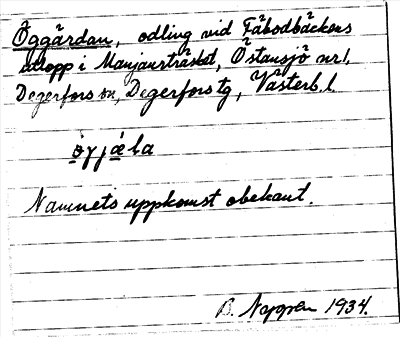 Öggärdan, odling vid Fäbodbäckens
utlopp i Manjaurträsket, Östansjö nr 1,
Degerfors sn, Degerfors tg, Västerb. l.
Namnets uppkomst obekant.
B. Nygren 1934.